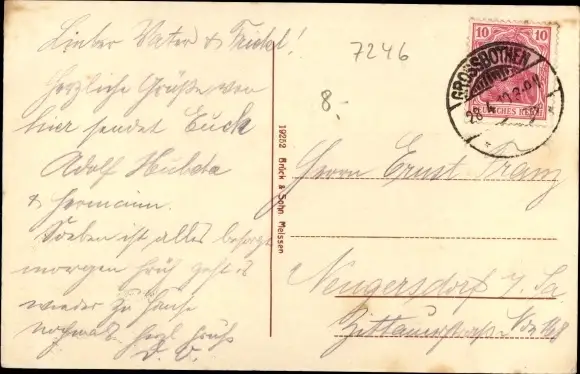 Lieber Vater & Friedel!
Herzliche Grüße von
hier sendet Euch
Adolf Hulda
& Hermann.
Soeben ist alles besorgt
morgen früh geht es
wieder zu Hause
nochmals herzl Gruß
D. O.
7246
8.-
10 10
GROSSBOTHEN
28.4.
DEUTSCHES REICH
19252 Brück & Sohn Meissen
Herrn Ernst Franz
Neugersdorf i/Sa
Zittauerstraße No 168